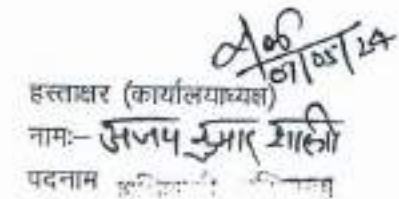 07/05/24
हस्ताक्षर (कार्यालयाध्यक्ष)
नामः- अजय कुमार शास्त्री
पदनाम